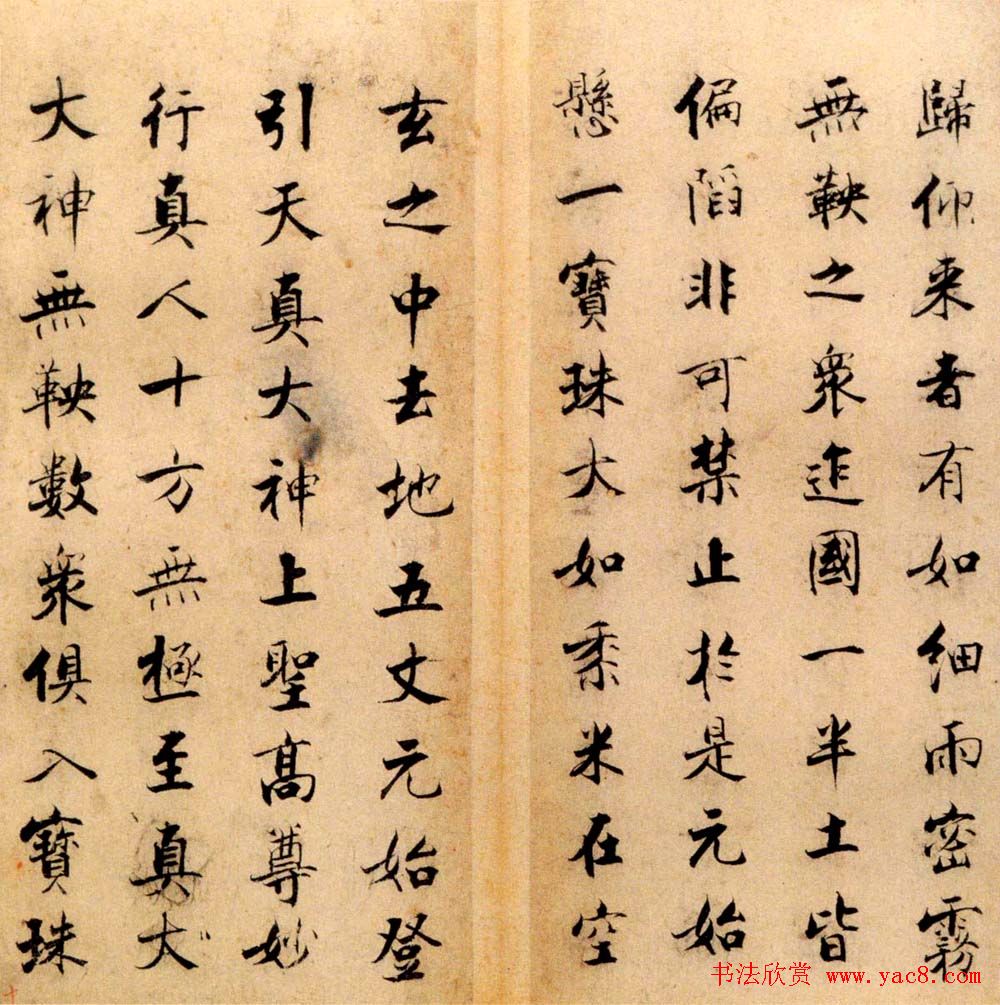 歸仰來者有如細雨密霧
無鞅之衆迮國一半土皆
偏陷非可禁止於是元始
懸一寶珠大如黍米在空
玄之中去地五丈元始登
引天真大神上聖高尊妙
行真人十方無極至真大
大神無鞅數衆俱入寶珠
书法欣赏 www.yac8.com